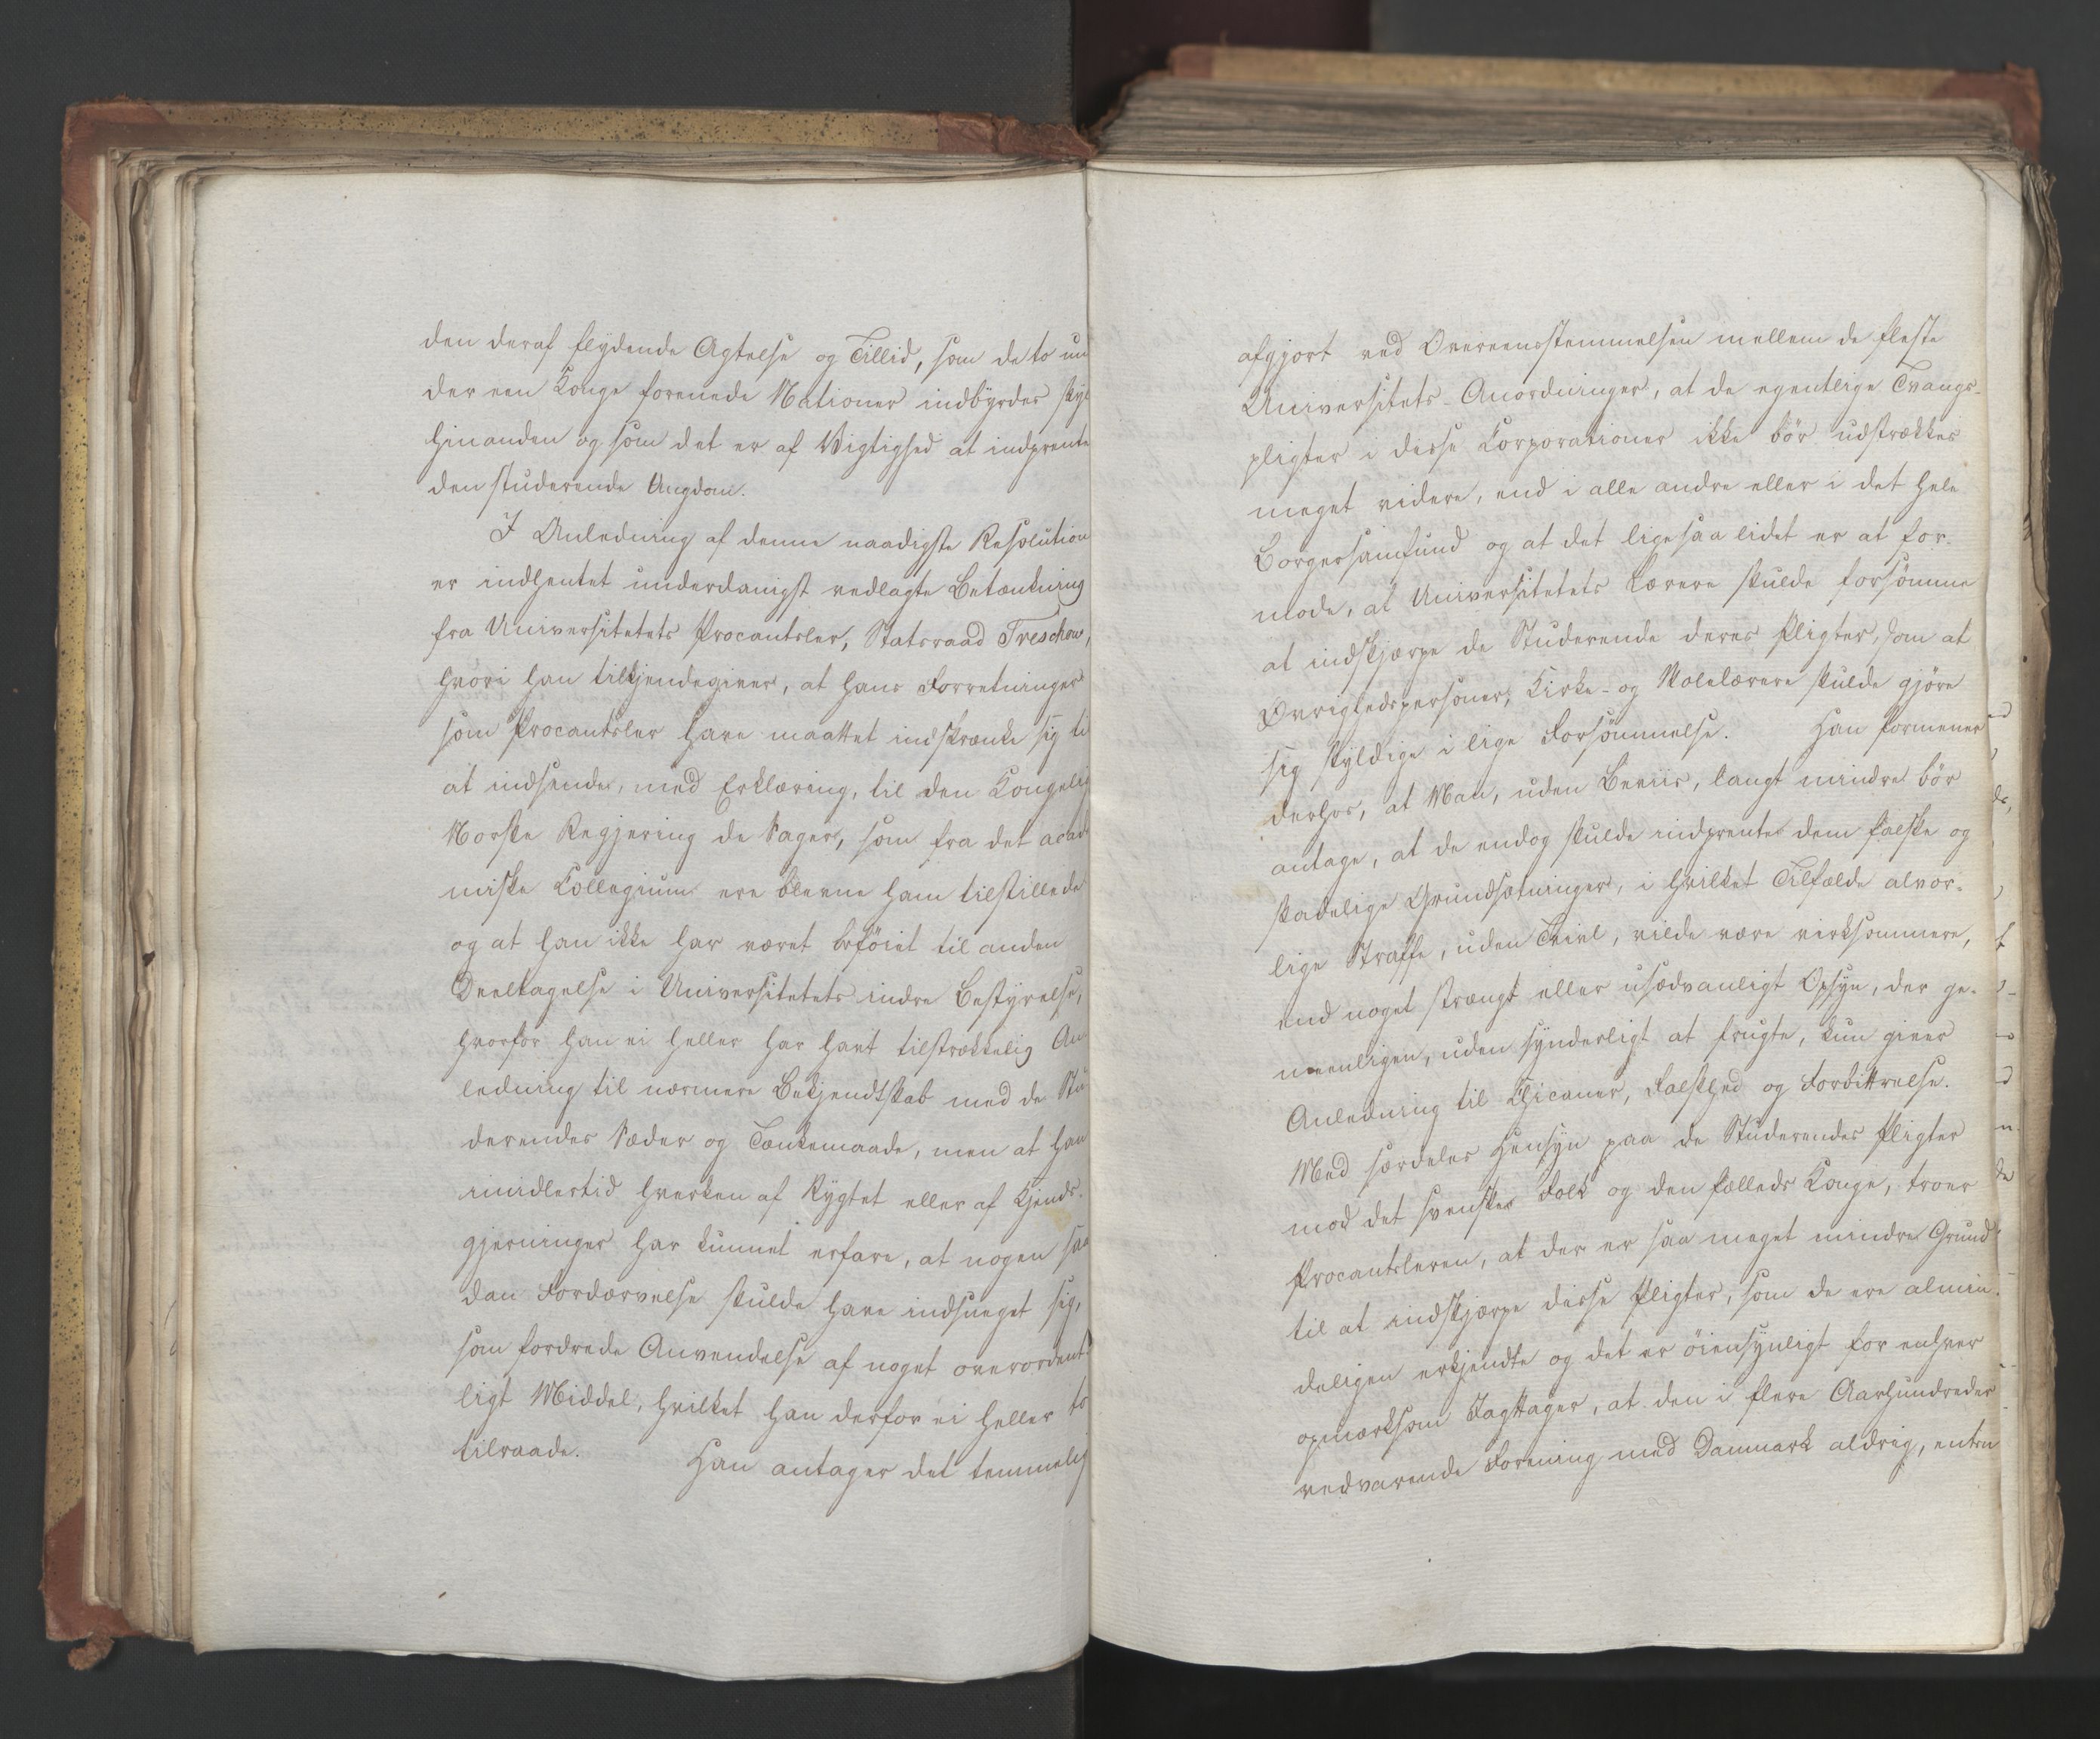 den deraf flydende Agtelse og Tillid, som de to un
der een Konge forenede Nationer indbyrdes skyl
hinanden og som det er af Vigtighed at indprente
den studerende Ungdom.
I Anledning af denne naadigste Resolution
er indhentet underdanigst vedlagte Betænkning
fra Universitetets Procantsler, Statsraad Treschow,
hvori han tilkjendegiver, at hans Forretninger
som Procantsler have maattet indskrænke sig til
at indsende, med Erklæring, til den Kongelig
Norske Regjering de Sager, som fra det acade
miske Collegium ere blevne ham tilstillede
og at han ikke har været beføiet til anden
Deeltagelse i Universitetets indre Bestyrelse,
hvorfor han ei heller har havt tilstrækkelig An
ledning til nærmere Bekjendtskab med de Stu
derendes Sæder og Tænkemaade, men at han
imidlertid hverken af Rygtet eller af Kjends-
gjerninger har kunnet erfare, at nogen saa
dan Fordærvelse skulde have indsneget sig,
som fordrede Anvendelse af noget overordent-
ligt Middel, hvilket han derfor ei heller to
tilraade. Han antager det temmelig
afgjort ved Overeensstemmelsen mellem de fleste
Universitets-Anordninger, at de egentlige Tvangs-
pligter i disse Corporationer ikke bör udstrækkes
meget videre, end i alle andre eller i det hele
Borgersamfund og at det ligesaa lidet er at for-
mode, at Universitetets Lærere skulde forsömme
at indskjærpe de Studerende deres Pligter, som at
Øvrighedspersoner, Kirke- og Skolelærere skulde gjöre
sig skyldige i lige Forsömmelse. Han formener
derhos, at Man, uden Beviis, langt mindre bör
antage, at de endog skulde indprente dem falske og
skadelige Grundsætninger, i hvilket Tilfælde alvor-
lige Straffe, uden Tvivl, vilde være virksommere,
end noget strængt eller usædvanligt Opsyn, der ge-
meenligen, uden synderligt at frugte, kun giver
Anledning til Chicaner, Falskhed og Forbittrelse.
Med særdeles Hensyn paa de Studerendes Pligter
mod det svenske Folk og den fælleds Konge, troer
Procantsleren, at der er saa meget mindre Grund
til at indskjærpe disse Pligter, som de ere almin-
deligen erkjendte og det er öiensynligt for enhver
opmærksom Iagttager, at den i flere Aarhundreder
vedvarende Forening med Danmark aldrig, enten